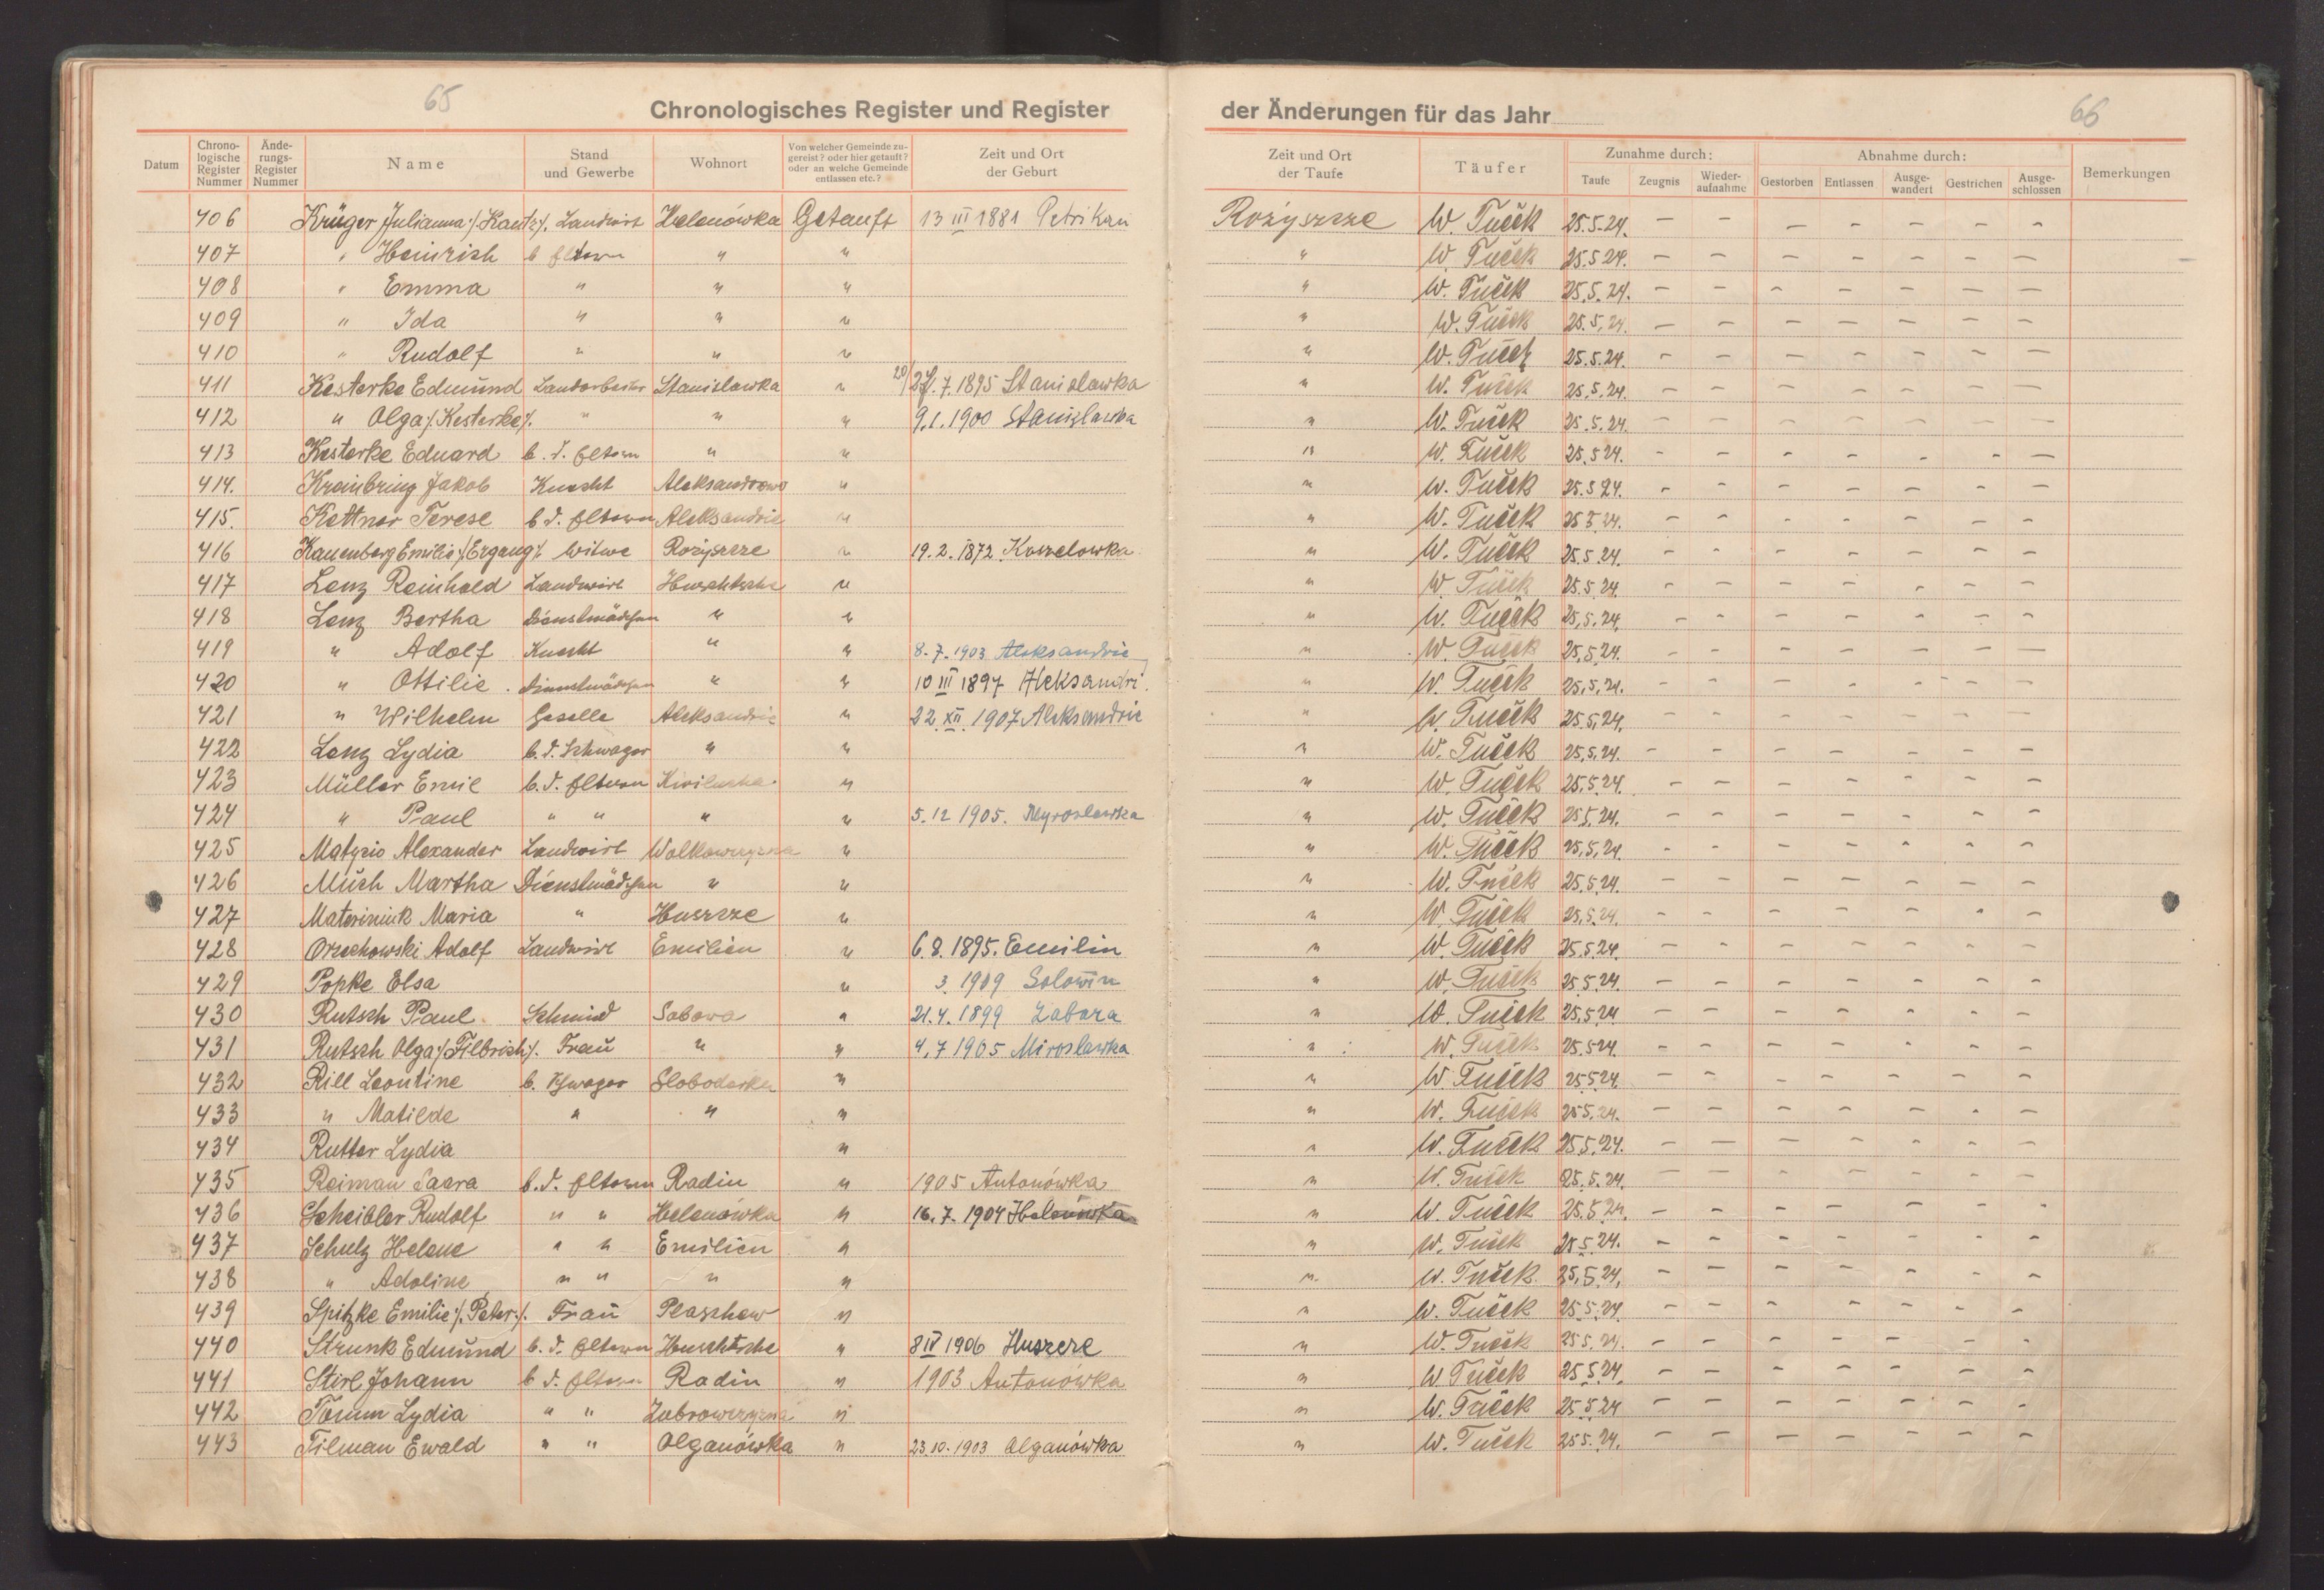 65
Chronologisches Register und Register der Änderungen für das Jahr
66
Datum | Chrono-logische Register Nummer | Ände-rungs-Register Nummer | Name | Stand und Gewerbe | Wohnort | Von welcher Gemeinde zu-gereist? oder hier getauft? oder an welche Gemeinde entlassen etc.? | Zeit und Ort der Geburt | Zeit und Ort der Taufe | Täufer | Zunahme durch: Taufe | Zeugnis | Wieder-aufnahme | Abnahme durch: Gestorben | Entlassen | Ausge-wandert | Gestrichen | Ausge-schlossen | Bemerkungen
406 Krüger Julianna /:Kautz:/ Landwirt Helenówka Getauft 13 III 1881 Petrikau Rożyszcze W. Tuček 25.5.24. — — — — — — —
407 " Heinrich b Eltern " " " W. Tuček 25.5.24. — — — — — — —
408 " Emma " " " " W. Tuček 25.5.24. — — — — — — —
409 " Ida " " " " W. Tuček 25.5.24. — — — — — — —
410 " Rudolf " " " " W. Tuček 25.5.24. — — — — — — —
411 Kesterke Edmund Landarbeiter Stanislawka " 20/27.7.1895 Stanislawka " W. Tuček 25.5.24. — — — — — — —
412 " Olga /:Kesterke:/ " " " 9.1.1900 Stanislawka " W. Tuček 25.5.24. — — — — — — —
413 Kesterke Eduard b. d. Eltern " " " W. Tuček 25.5.24. — — — — — — —
414. Krambring Jakob Knecht Aleksandrowo " " W. Tuček 25.5.24. — — — — — — —
415. Kettner Terese b d. Eltern Aleksandrie " " W. Tuček 25.5.24. — — — — — — —
416 Kauenberg Emilie /:Ergang:/ Witwe Rożyszcze " 19.2.1872 Koszelowka " W. Tuček 25.5.24. — — — — — — —
417 Lenz Reinhold Landwirt Huschtsche " " W. Tuček 25.5.24. — — — — — — —
418 Lenz Bertha Dienstmädchen " " " W. Tuček 25.5.24. — — — — — — —
419 " Adolf Knecht " " 8.7.1903 Aleksandrie " W. Tuček 25.5.24. — — — — — — —
420 " Ottilie Dienstmädchen " " 10 III 1897 Aleksandri. " W. Tuček 25.5.24. — — — — — — —
421 " Wilhelm Geselle Aleksandrie " 22.XII.1907 Aleksandrie " W. Tuček 25.5.24. — — — — — — —
422 Lenz Lydia b. d. Schwager " " " W. Tuček 25.5.24. — — — — — — —
423 Müller Emil b. d. Eltern " " W. Tuček 25.5.24. — — — — — — —
424 " Paul " " " " 5.12 1905. Myroslawka " W. Tuček 25.5.24. — — — — — — —
425 Alexander Landwirt Wolkowczyzna " " W. Tuček 25.5.24. — — — — — — —
426 Much Martha Dienstmädchen " " " W. Tuček 25.5.24. — — — — — — —
427 Materiniuk Maria " Huszcze " " W. Tuček 25.5.24. — — — — — — —
428 Orzechowski Adolf Landwirt Emilien " 6.8.1895. Emilin " W. Tuček 25.5.24. — — — — — — —
429 Popke Elsa " 3. 1909 Solowin " W. Tuček 25.5.24. — — — — — — —
430 Rutsch Paul Schmied Sabowa " 21.4.1899 Zabara " W. Tuček 25.5.24 — — — — — — —
431 Rutsch Olga /:Filbrich:/ Frau " " 4.7 1905 Miroslawka " W. Tuček 25.5.24. — — — — — — —
432 Rill Leontine b. Schwager Slobodarka " " W. Tuček 25.5.24. — — — — — — —
433 " Matilde " " " " W. Tuček 25.5.24. — — — — — — —
434 Rutter Lydia " " W. Tuček 25.5.24. — — — — — — —
435 Reiman Saara b. d. Eltern Radin " 1905 Antonówka " W. Tuček 25.5.24. — — — — — — —
436 Scheibler Rudolf " " Helenówka " 16.7.1904 Helenówka " W. Tuček 25.5.24. — — — — — — —
437 Schulz Helene " " Emilien " " W. Tuček 25.5.24. — — — — — — —
438 " Adoline " " " " " W. Tuček 25.5.24. — — — — — — —
439 Spitzke Emilie /:Peter:/ Frau Plaschew " " W. Tuček 25.5.24. — — — — — — —
440 Strunk Edmund b. d. Eltern Huschtsche " 8 IV 1906 Huszcze " W. Tuček 25.5.24. — — — — — — —
441 Stirl Johann b d. Eltern Radin " 1903 Antonówka " W. Tuček 25.5.24. — — — — — — —
442 Tomm Lydia " " " " W. Tuček 25.5.24 — — — — — — —
443 Tilman Ewald " " Olganówka " 23.10.1903 Olganówka " W. Tuček 25.5.24. — — — — — — —